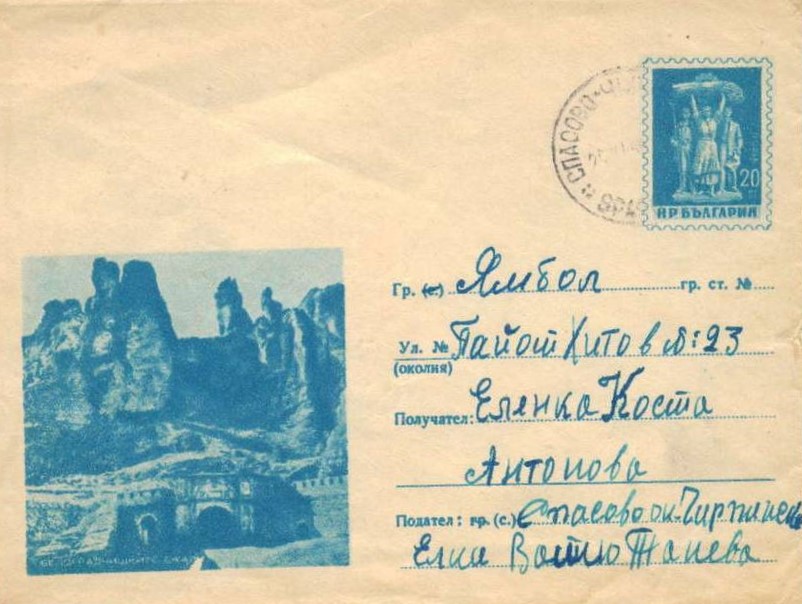 СПАСОВО
20
НР БЪЛГАРИЯ
Гр. (с.) Ямбол гр. ст. №
Ул. № Пайот Хитов №: 23
(околия)
Получател: Еленка Коста
Антонова
Подател: гр. (с.) Спасово ок.
Елка Танева
БЕЛОГРАДЧИШКИТЕ СКАЛИ